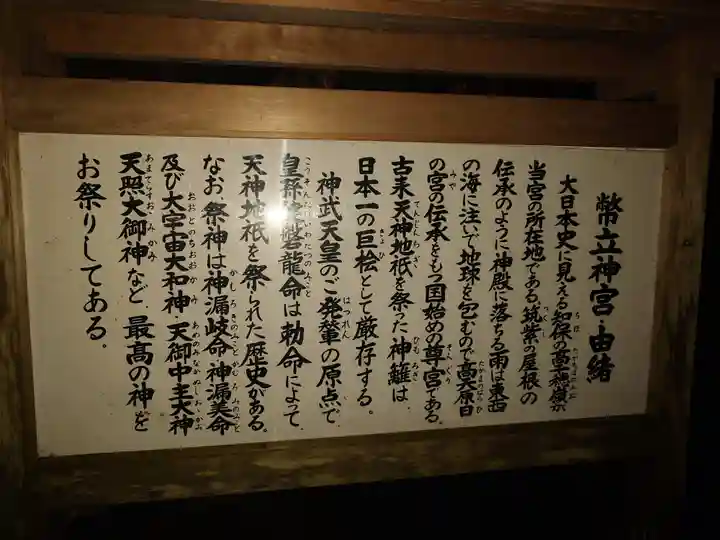 幣立神宮・由緒
大日本史に見える知保の高千穂嶺が
当宮の所在地である。筑紫の屋根の
伝承のように神殿に落ちる雨は東西
の海に注いで地球を包むので高天原日
の宮の伝承をもつ国始めの尊宮である。
古来天神地祇を祭った神籬は、
日本一の巨桧として厳存する。
神武天皇のご発輦の原点で、
皇孫健磐龍命は勅命によって、
天神地祇を祭られた歴史がある。
なお 祭神は神漏岐命 神漏美命
及び大宇宙大和神 天御中主大神
天照大御神など、最高の神を
お祭りしてある。